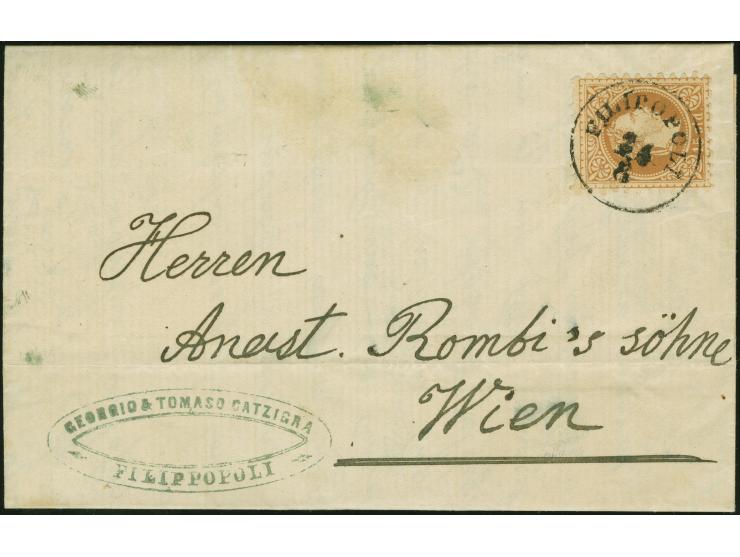 FILIPOPOLI
24
8
Herren
Anast. Rombi's söhne
Wien
GEORGIO & TOMASO CATZIGRA
FILIPPOPOLI